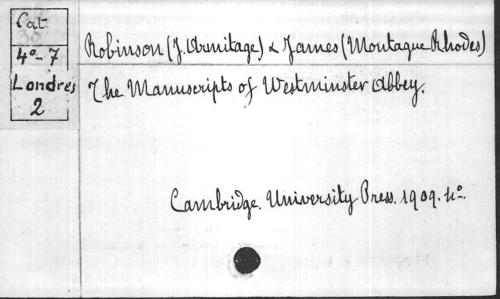 Cat.
4º-7
Londres
2
Robinson (J. Armitage) & James (Montague Rhodes)
The Manuscripts of Westminster Abbey.
Cambridge. University Press. 1909. 4º.